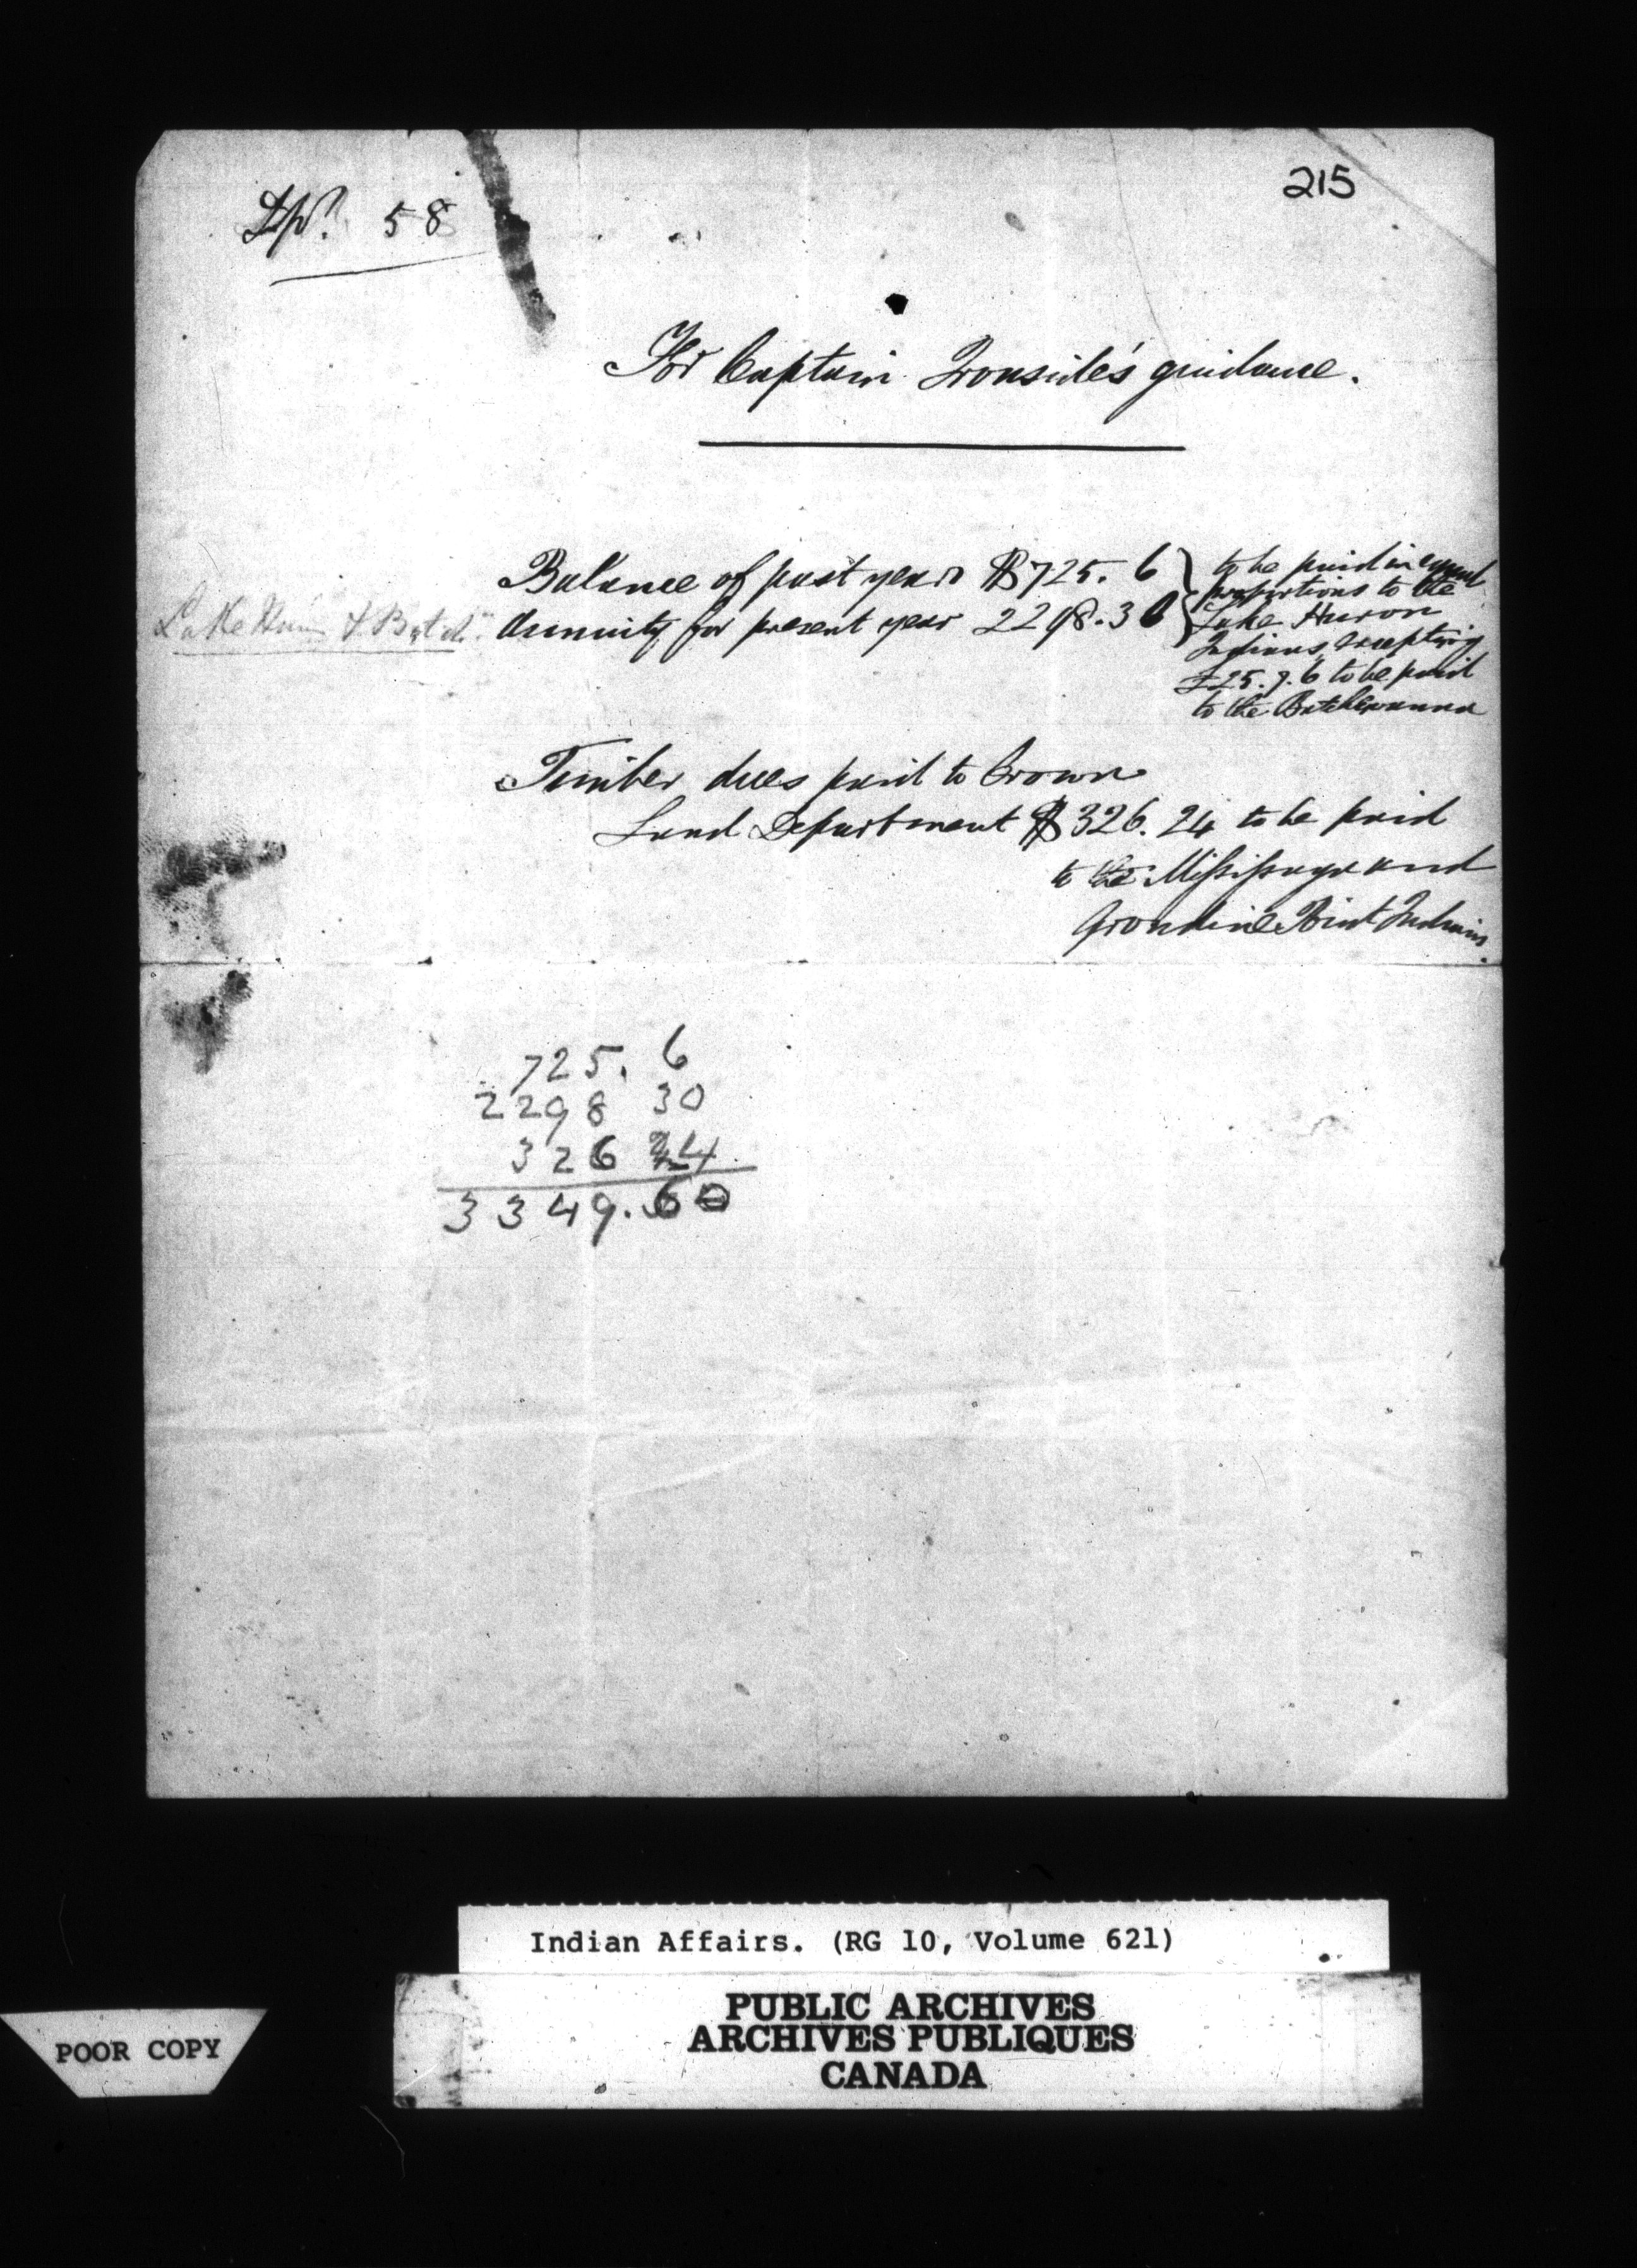 215
58
For Captain Ironside's guidance.
Balance of past years $725. 6 } to be paid in equal
proportions to the
Lake Hur. & Batch. Annuity for present year 2298.30 } Lake Huron
Indians, excepting
£25.9.6 to be paid
to the Batchewanna
Timber dues paid to Crown
Land Department $326.24 to be paid
to the Mississaga and
Grondine Point Indians.
725. 6
2298 30
326 24
3349.60
Indian Affairs. (RG 10, Volume 621)
PUBLIC ARCHIVES
ARCHIVES PUBLIQUES
CANADA
POOR COPY